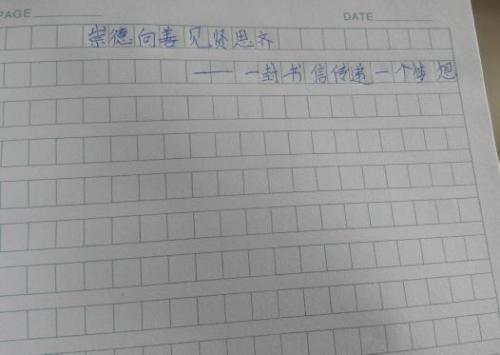 PAGE DATE
崇德向善见贤思齐
——一封书信传递一个梦想